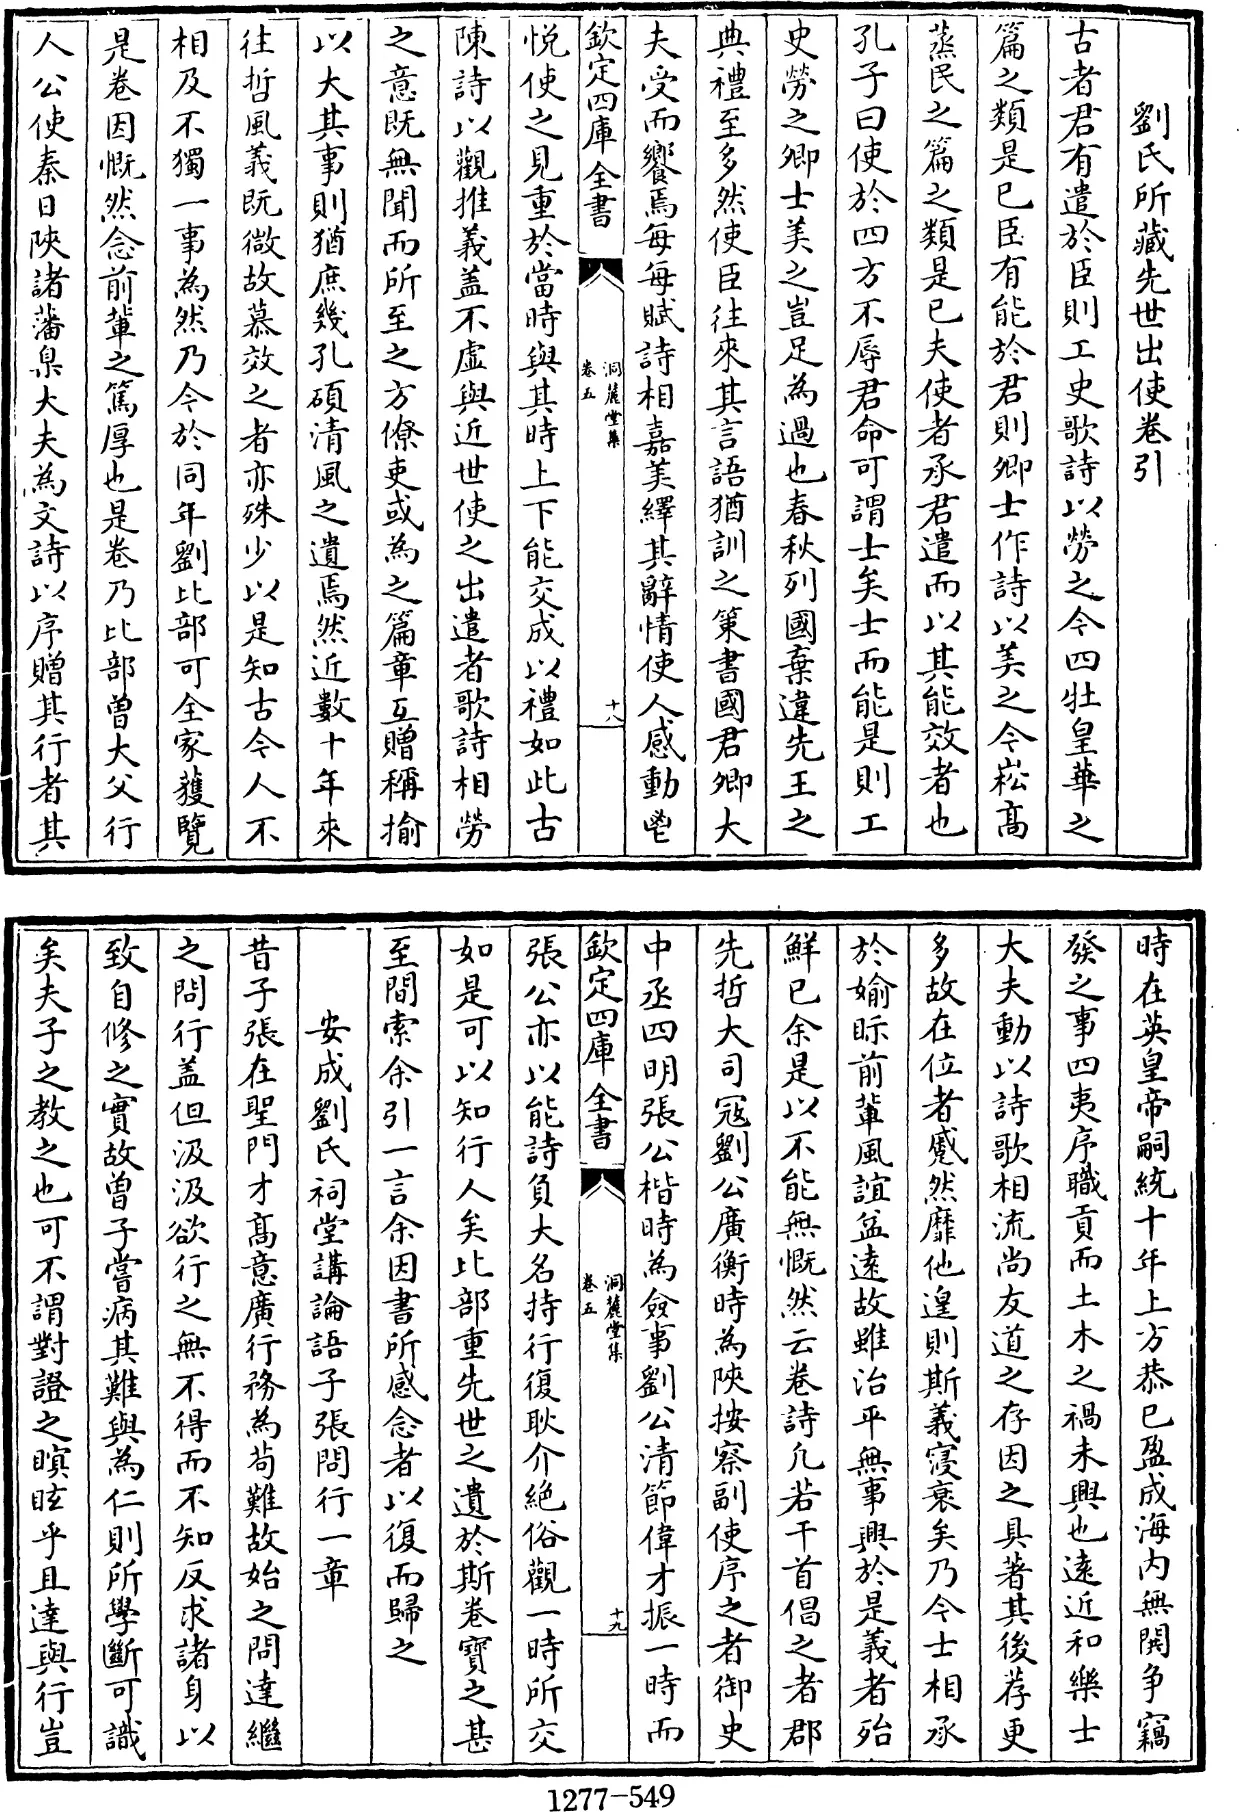 劉氏所藏先世出使卷引
古者君有遣於臣則工史歌詩以勞之今四牡皇華之
篇之類是已臣有能於君則卿士作詩以美之今崧高
蒸民之篇之類是已夫使者承君遣而以其能效者也
孔子曰使於四方不辱君命可謂士矣士而能是則工
史勞之卿士美之豈足為過也春秋列國棄違先王之
典禮至多然使臣往來其言語猶訓之策書國君卿大
夫受而饗焉每每賦詩相嘉美繹其辭情使人感動鬯
欽定四庫全書
洞麓堂集
卷五
十八
悅使之見重於當時與其時上下能交成以禮如此古
陳詩以觀推義盖不虛與近世使之出遣者歌詩相勞
之意既無聞而所至之方僚吏或為之篇章互贈稱揄
以大其事則猶庶幾孔碩清風之遺焉然近數十年來
往哲風義既微故慕效之者亦殊少以是知古今人不
相及不獨一事為然乃今於同年劉比部可全家獲覽
是卷因慨然念前輩之篤厚也是卷乃比部曽大父行
人公使秦日陜諸藩臬大夫為文詩以序贈其行者其
時在英皇帝嗣統十年上方恭已盈成海内無鬨争竊
發之事四夷序職貢而土木之禍未興也遠近和樂士
大夫動以詩歌相流尚友道之存因之具著其後荐更
多故在位者蹙然靡他遑則斯義寖衰矣乃今士相承
於媮眎前輩風誼益遠故雖治平無事興於是義者殆
鮮已余是以不能無慨然云卷詩凡若干首倡之者郡
先哲大司冦劉公廣衡時為陜按察副使序之者御史
中丞四明張公楷時為僉事劉公清節偉才振一時而
欽定四庫全書
洞麓堂集
卷五
十九
張公亦以能詩負大名持行復耿介絶俗觀一時所交
如是可以知行人矣比部重先世之遺於斯卷寶之甚
至間索余引一言余因書所感念者以復而歸之
安成劉氏祠堂講論語子張問行一章
昔子張在聖門才高意廣行務為茍難故始之問達繼
之問行盖但汲汲欲行之無不得而不知反求諸身以
致自修之實故曽子嘗病其難與為仁則所學斷可識
矣夫子之教之也可不謂對證之瞑眩乎且達與行豈
1277-549